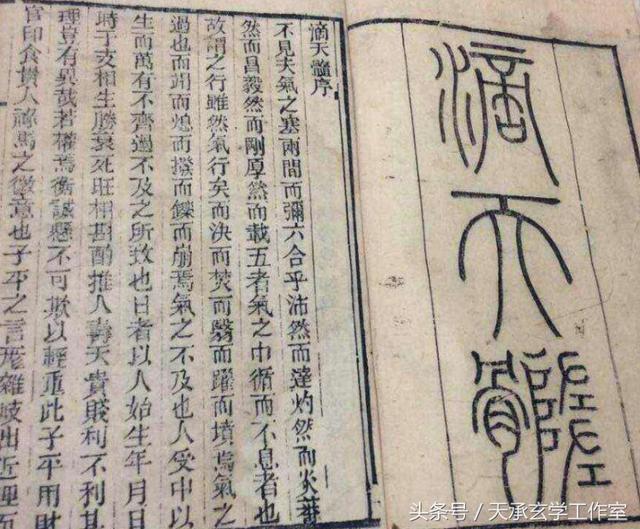 滴天髓
滴天髓序
不見夫氣之塞兩間而彌六合乎沛然而達灼然而炎蓊
然而昌毅然而剛厚然而載五者氣之中循而不息者也
故謂之行雖然氣行矣而決而焚而翳而躍而墳焉氣之
過也而涸而熄而撥而鑠而崩焉氣之不及也人受中以
生而萬有不齊過不及之所致也日者以人始生年月日
時于支相生勝衰死旺相斟酌推人壽夭貴賤利不利其
理豈有異哉若權焉衡誠懸不可欺以輕重此子平用財
官印食貴人祿馬之徵意也子平之言厖雜岐出近理而
头条号/天承玄学工作室